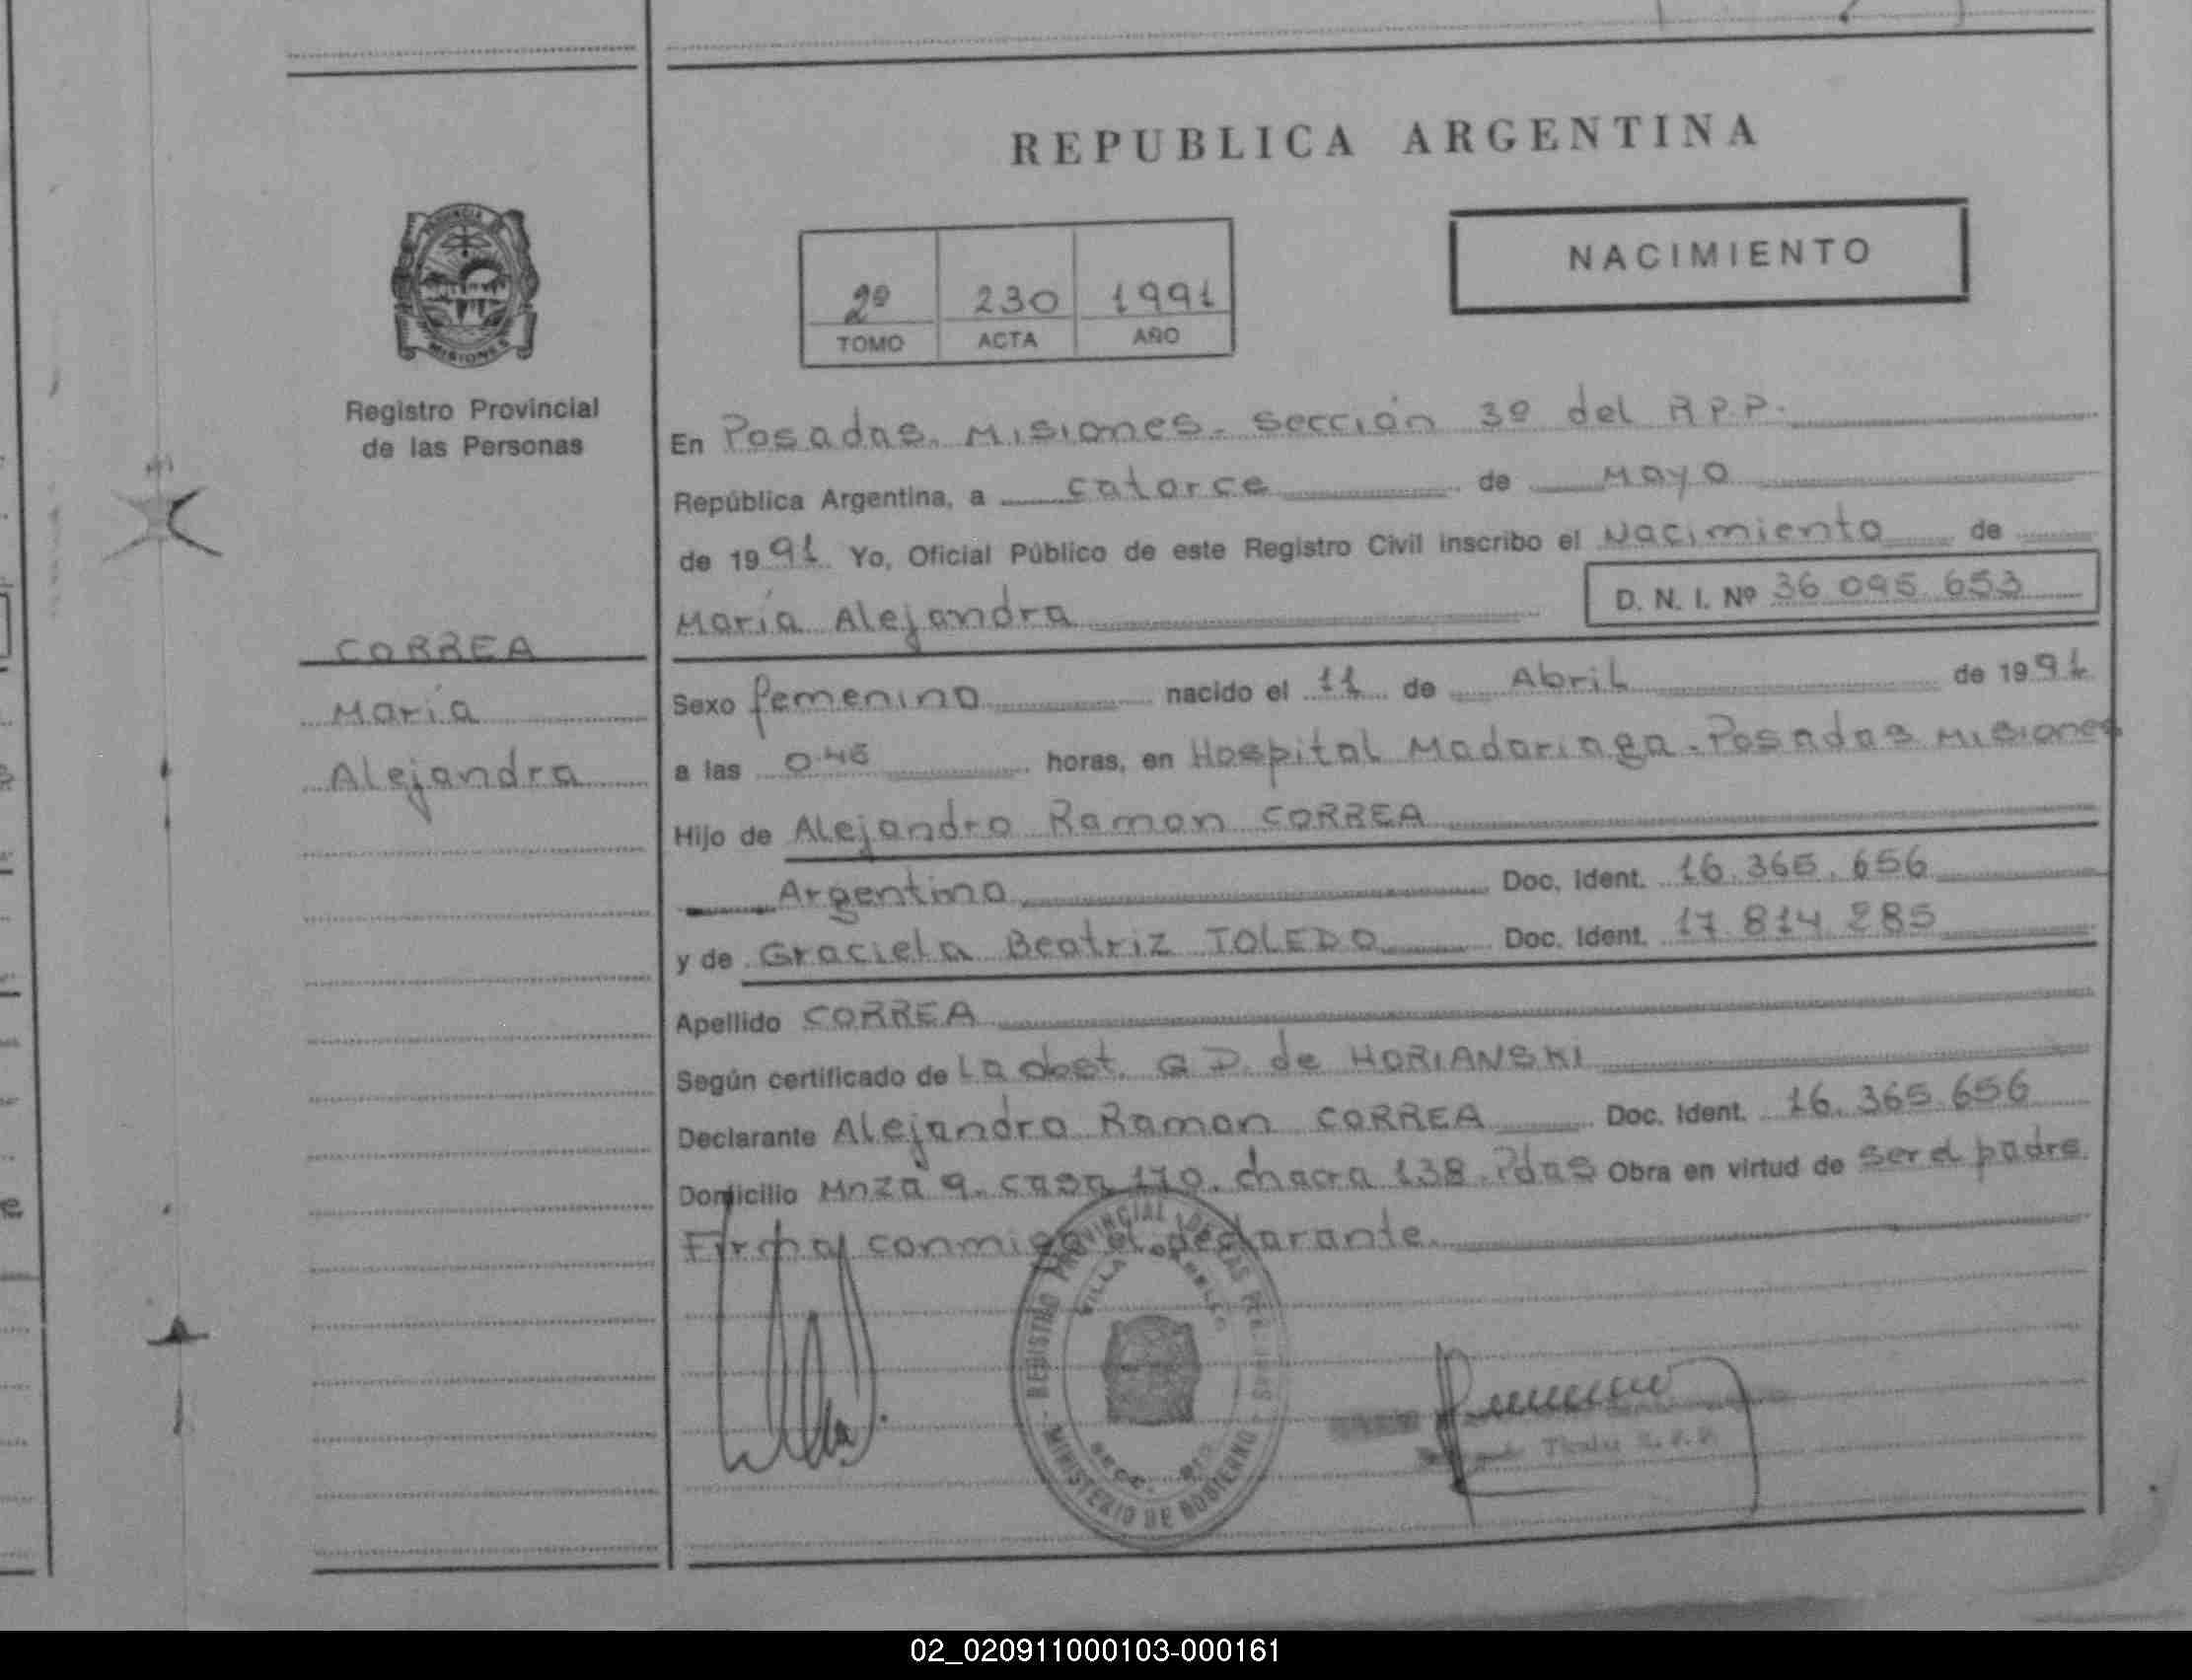 REPUBLICA ARGENTINA
NACIMIENTO
2º 230 1991
TOMO ACTA AÑO
PROVINCIA DE
MISIONES
Registro Provincial
de las Personas
CORREA
María
Alejandra
En Posadas. Misiones. Sección 3º del R.P.P.
República Argentina, a catorce de Mayo
de 1991 Yo, Oficial Público de este Registro Civil inscribo el Nacimiento de
María Alejandra D. N. I. Nº 36 095 653
Sexo femenino nacido el 11 de Abril de 1991
a las 0.45 horas, en Hospital Madariaga. Posadas Misiones
Hijo de Alejandro Ramon CORREA
Argentino Doc. Ident. 16.365.656
y de Graciela Beatriz TOLEDO Doc. Ident. 17 814 285
Apellido CORREA
Según certificado de La obst. G D. de HORIANSKI
Declarante Alejandro Ramon CORREA Doc. Ident. 16.365.656
Domicilio Mnza 9. casa 170. chacra 138. Pdas Obra en virtud de ser el padre.
Firma conmigo el declarante.
REGISTRO PROVINCIAL DE LAS
VILLA
MINISTERIO DE GOBIERNO
02_020911000103-000161